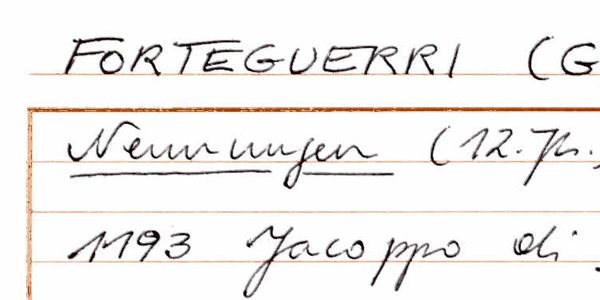 FORTEGUERRI (G
Nennungen (12. Jh.
1193 Jacoppo di